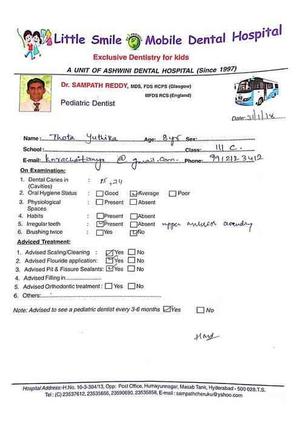 Little Smile Mobile Dental Hospital
Exclusive Dentistry for kids
A UNIT OF ASHWINI DENTAL HOSPITAL (Since 1997)
Dr. SAMPATH REDDY, MDS, FDS RCPS (Glasgow)
MFDS RCS (England)
Pediatric Dentist
Date:
Name: Thota Yuthika Age: 8 yrs Sex:
School: Class: III C.
E-mail: @ gmail.com
On Examination:
1. Dental Caries in (Cavities) :
2. Oral Hygiene Status : Good Average Poor
3. Physiological Spaces : Present Absent
4. Habits : Present Absent
5. Irregular teeth : Present Absent upper anterior crowding
6. Brushing twice : Yes No
Adviced Treatment:
1. Advised Scaling/Cleaning : Yes No
2. Advised Flouride application: Yes No
3. Advised Pit & Fissure Sealants: Yes No
4. Advised Filling in
5. Advised Orthodontic treatment : Yes No
6. Others:
Note: Advised to see a pediatric dentist every 3-6 months Yes No
Hospital Address: H.No. 10-3-304/13, Opp: Post Office, Humayunnagar, Masab Tank, Hyderabad - 500 028.T.S.
Tel: (C) 23537612, 23535656, 23590690, 23535858, E-mail: sampathcheruku@yahoo.com